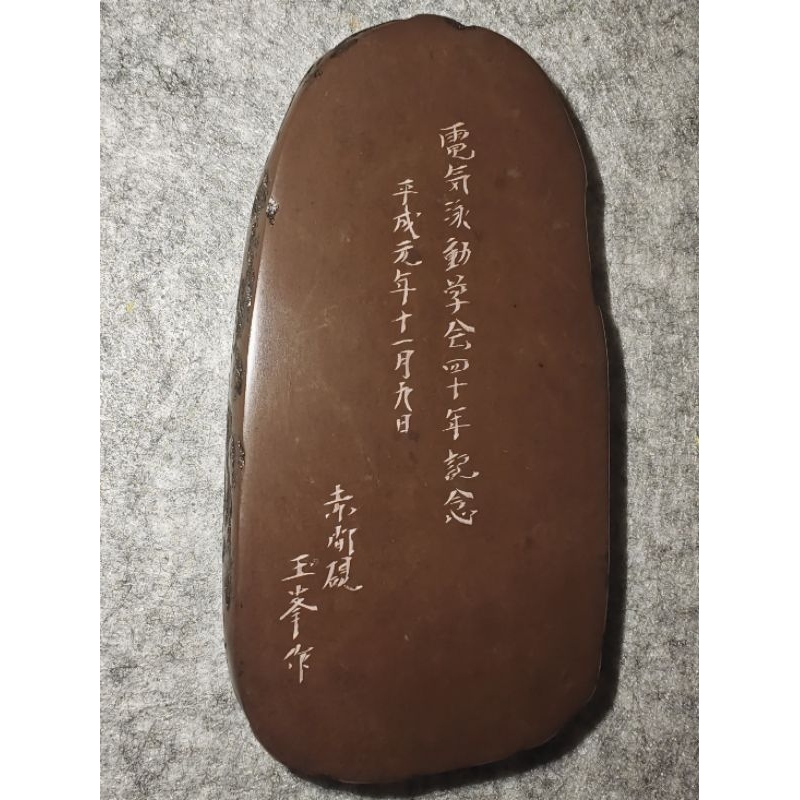 電気泳動学会四十年記念
平成元年十一月九日
赤間硯
玉峯作